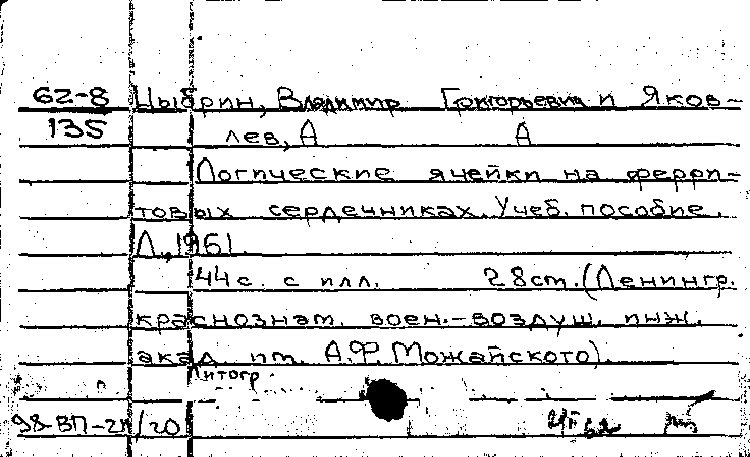 62-8 Цыбрин, Владимир Григорьевич и Яков-
135 лев, А А
Логические ячейки на ферри-
товых сердечниках. Учеб. пособие.
Л., 1961.
44 с. с илл. 28 см. (Ленингр.
краснознам. воен.-воздуш. инж.
акад. им. А.Ф. Можайского).
Литогр.
98-ВП-2К/20